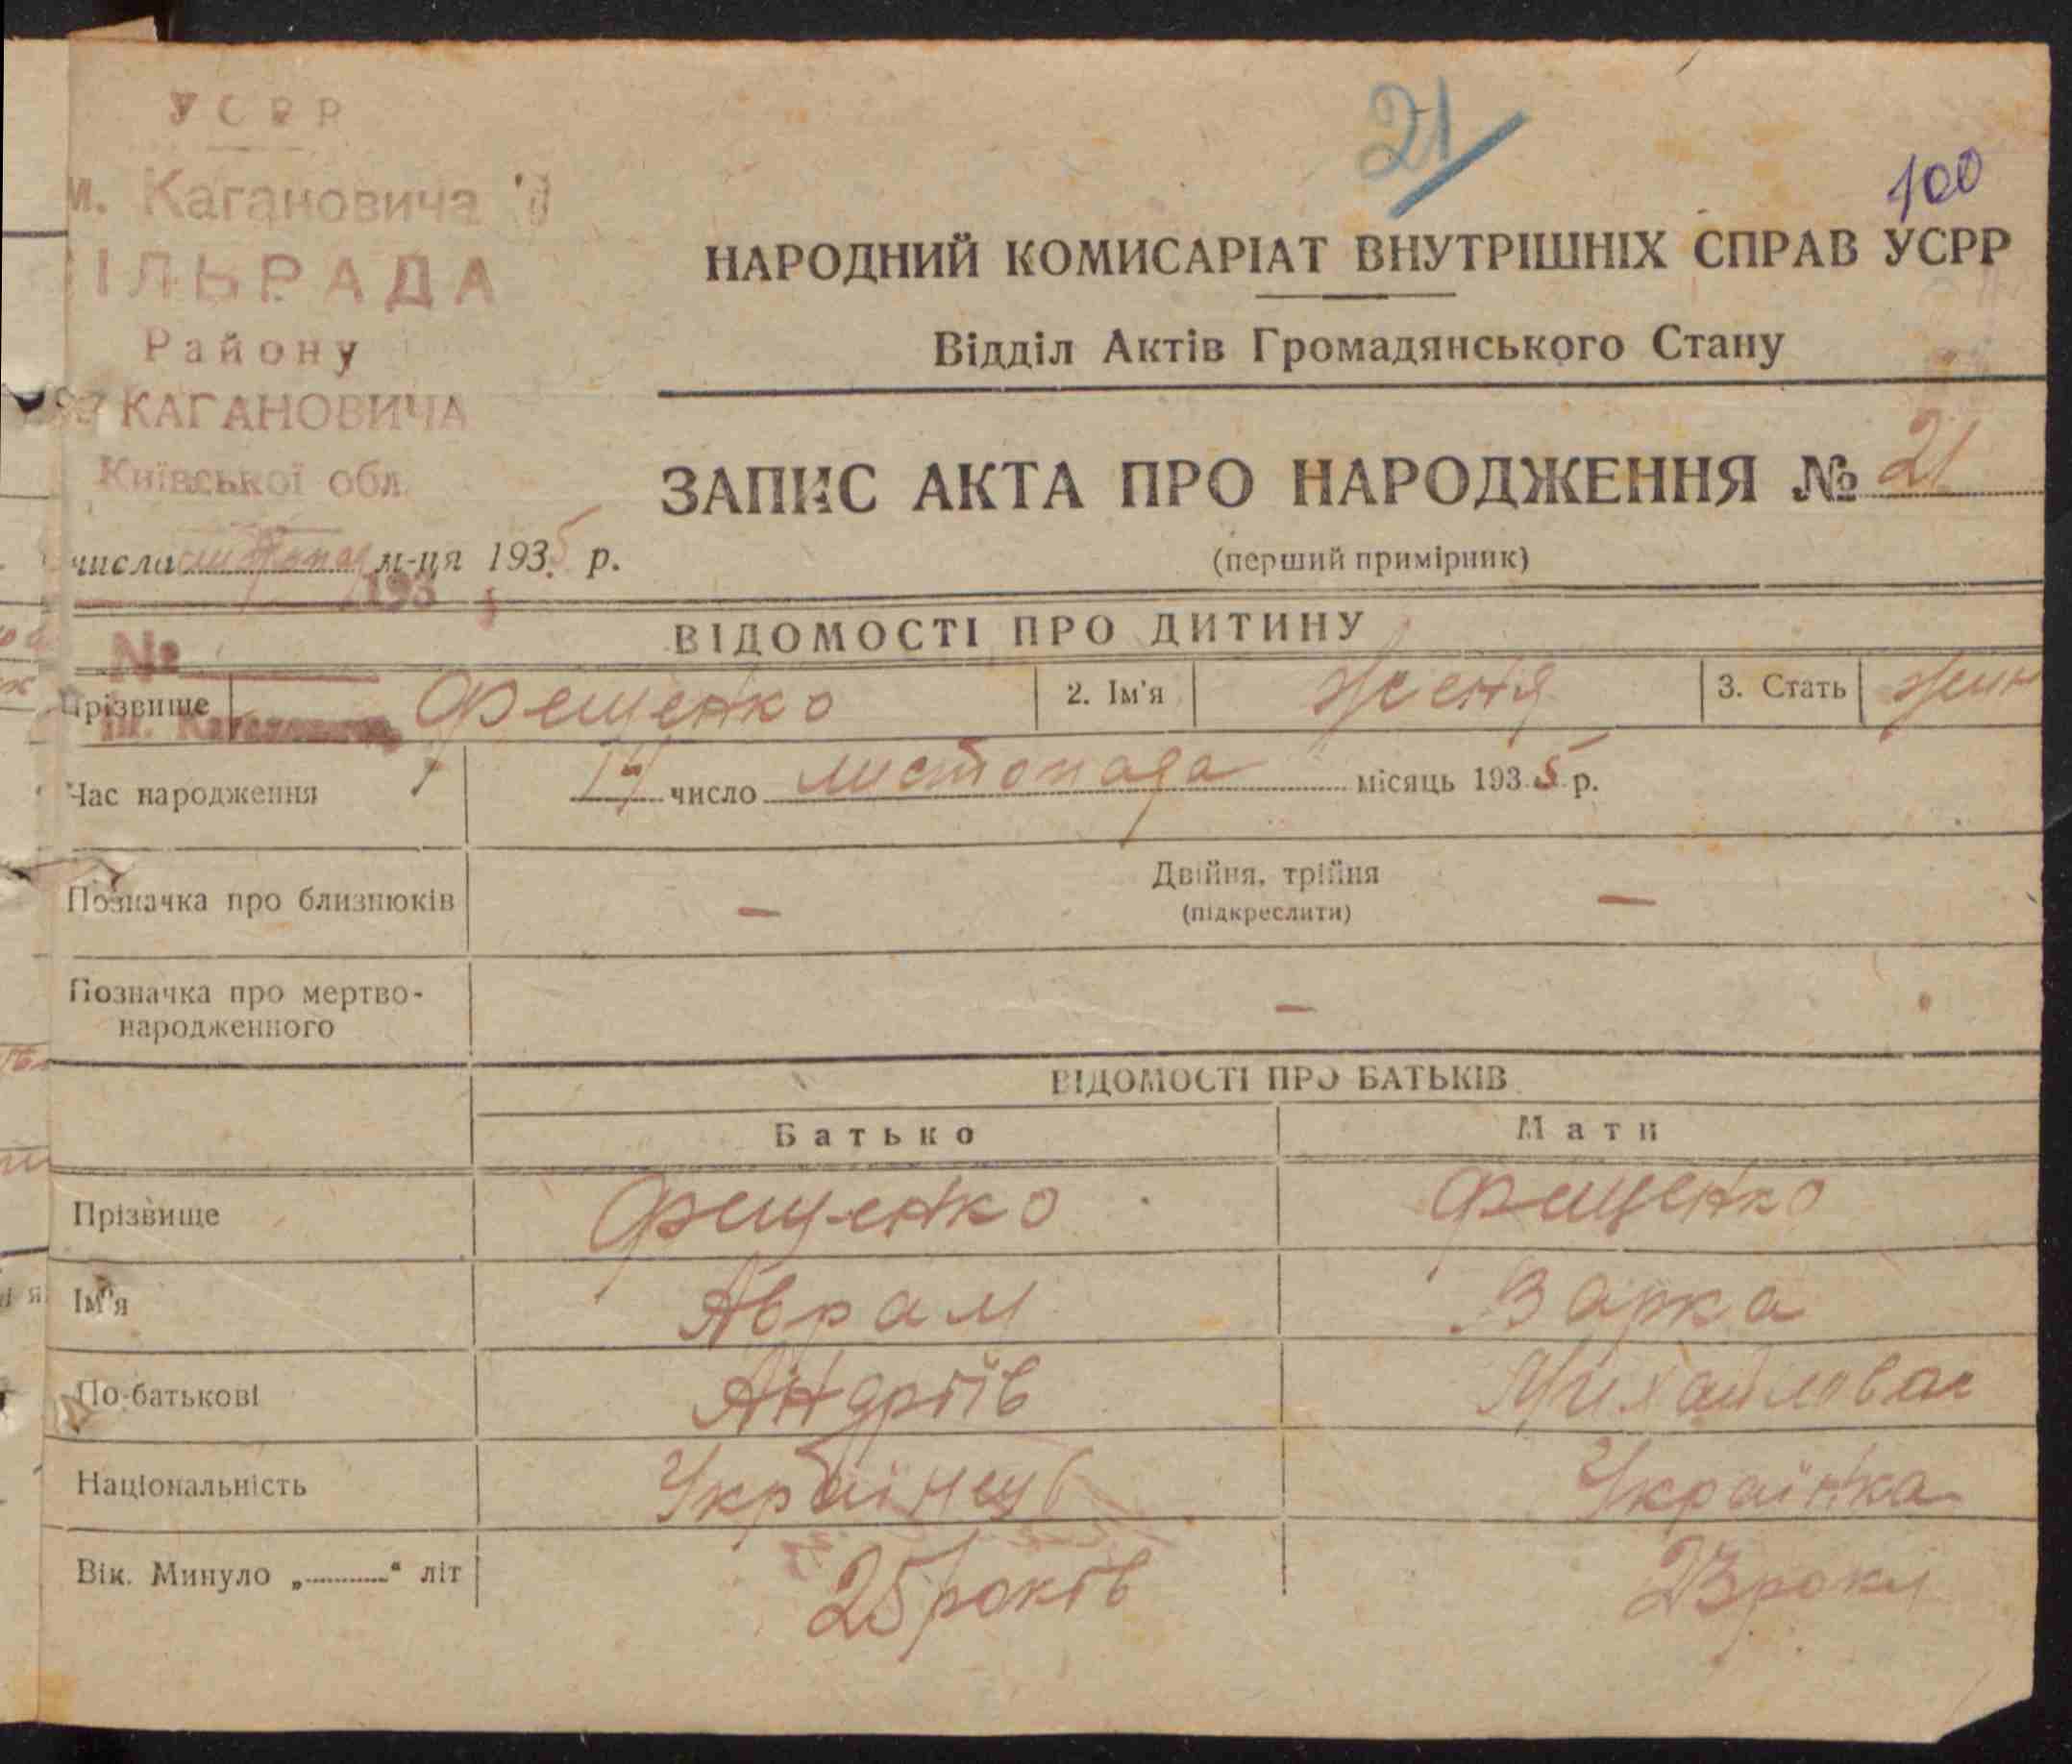 УСРР
м. Кагановича
ІЛЬРАДА
Району
КАГАНОВИЧА
Київської обл.
21
100
НАРОДНИЙ КОМИСАРІАТ ВНУТРІШНІХ СПРАВ УСРР
Відділ Актів Громадянського Стану
ЗАПИС АКТА ПРО НАРОДЖЕННЯ № 21
(перший примірник)
числа листопад м-ця 1935 р.
193 5
ВІДОМОСТІ ПРО ДИТИНУ
№
Прізвище Фещенко 2. Ім'я Женя 3. Стать жін
ім. Кагановича
Час народження 17 число листопада місяць 1935 р.
Позначка про близнюків — Двійня, трійня —
(підкреслити)
Позначка про мертво-
народженного —
ВІДОМОСТІ ПРО БАТЬКІВ
Батько Мати
Прізвище Фещенко Фещенко
Ім'я Аврам Варка
По-батькові Андріїв Михайлова
Національність Українець Українка
Вік. Минуло „ “ літ 25 років 23 роки